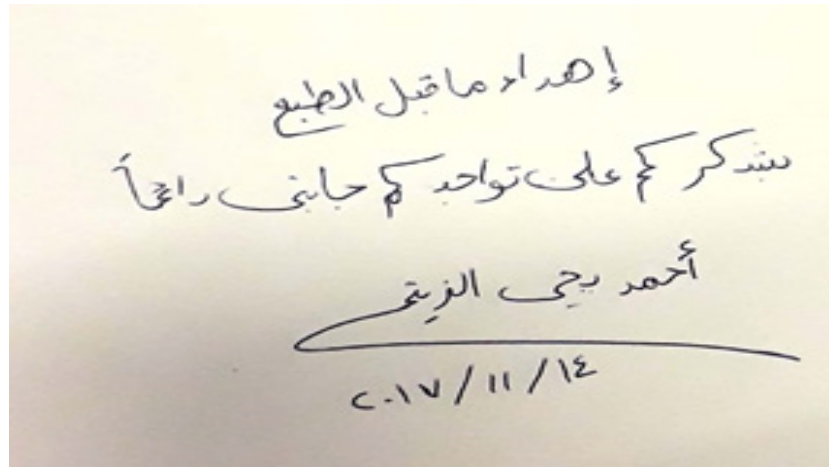 إهداء ما قبل الطبع
بشكركم على تواجدكم جانبي دائماً
أحمد يحيى الزيني
٢٠١٧/١١/١٤